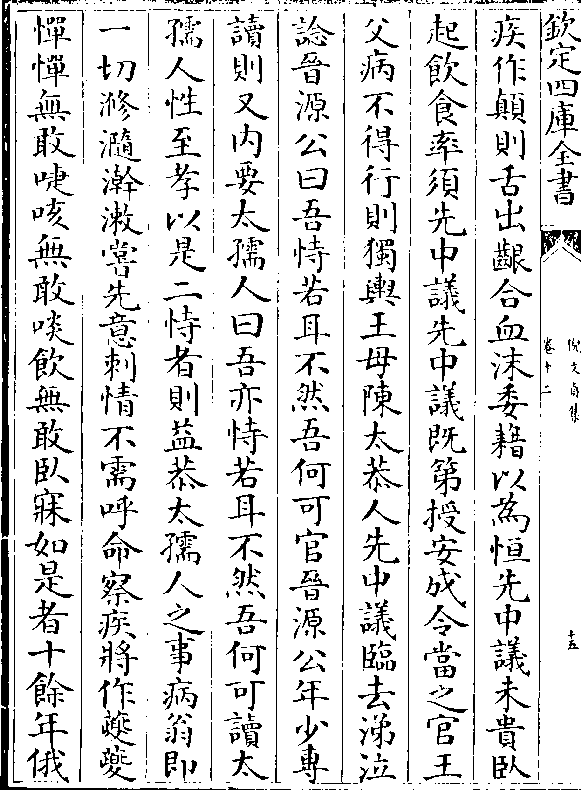 欽定四庫全書
倪文貞集
卷十二
十五
疾作顛則舌出齦合血沫委藉以為恒先中議未貴臥
起飲食率須先中議先中議既第授安成令當之官王
父病不得行則獨輿王母陳太恭人先中議臨去涕泣
諗晉源公曰吾恃若耳不然吾何可官晉源公年少專
讀則又內要太孺人曰吾亦恃若耳不然吾何可讀太
孺人性至孝以是二恃者則益恭太孺人之事病翁即
一切滫瀡澣漱嘗先意刺情不需呼命察疾將作夔夔
憚憚無敢啑咳無敢啖飲無敢臥寐如是者十餘年俄